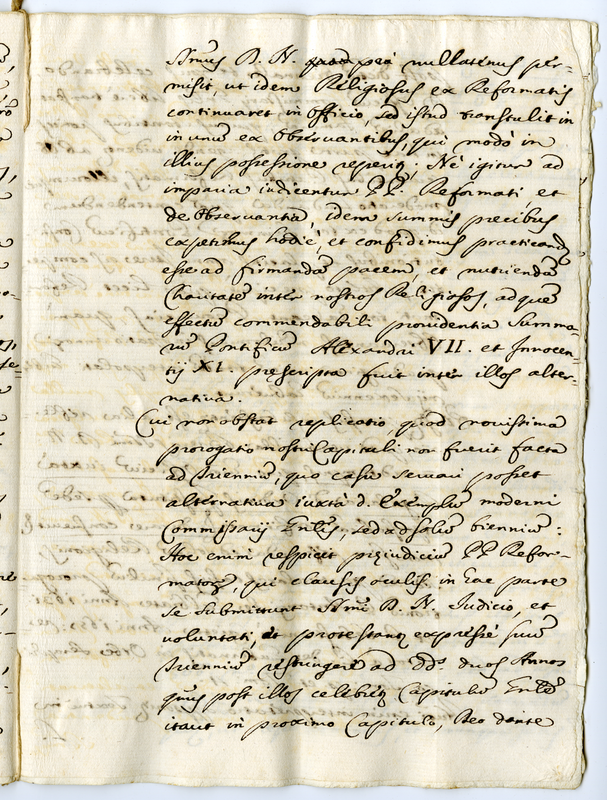 Ssmus D. N. nullatenus per-
misit, ut idem Religiosus ex Reformatis
continuaret in officio, sed istud transtulit in
in unum ex observantibus, qui modò in
illius possessione reperitur; Ne igitur ad
imparia iudicentur PP. Reformati et
de Observantia, idem summis precibus
expetimus hodiè, et confidimus practicand
esse ad firmandã pacem, et nutriendã
Charitatẽ inter nostros Religiosos, ad quẽ
effectũ commendabili providentia Summo-
rũ Pontificũ Alexandri VII. et Innocen-
tij XI. prescripta fuit inter illos alter-
nativa.
Cui non obstat replicatio, quod novissima
prorogatio nostri Capituli non fuerit facta
ad trienniũ, quo casu servari posset
alternativa iuxtà d. Exemplũ moderni
Commissarij Gnlis, sed ad solũ bienniũ:
Hoc enim respicit preiudiciũ PP. Refor-
matorũ, qui clausis oculis in hac parte
se submittunt Ssmi D. N. Iudicio, et
voluntati, et protestantur expressè suũ
trienniũ restringere ad dd. duos Annos
quis post illos celebretur Capitulũ Gnle
itaut in proximo Capitulo, Deo dante